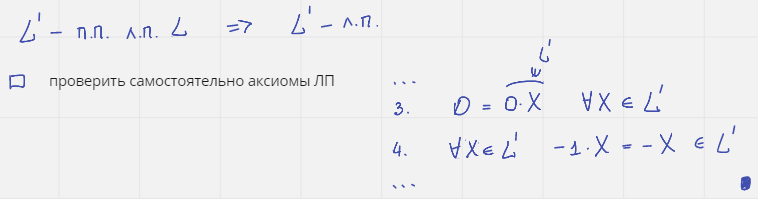 L' – п.п. л.п. L ⇒ L' – л.п.
□ проверить самостоятельно аксиомы ЛП
...
L'
3. 0 = 0·X ∀X ∈ L'
4. ∀X ∈ L' -1·X = -X ∈ L'
...